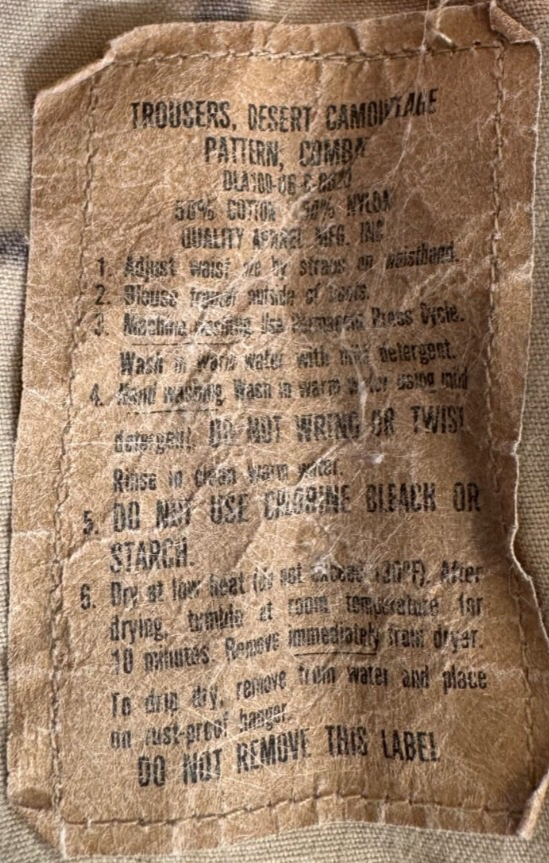 TROUSERS, DESERT CAMOUFLAGE
PATTERN, COMBAT
50% COTTON 50% NYLON
QUALITY APPAREL MFG. INC
1. Adjust waist size by straps on waistband.
2. Blouse trouser outside of boots.
3. Machine washing Use Permanent Press Cycle.
Wash in warm water with mild detergent.
4. Hand washing Wash in warm water using mild
detergent. DO NOT WRING OR TWIST
Rinse in clean warm water.
5. DO NOT USE CHLORINE BLEACH OR
STARCH.
6. Dry at low heat (do not exceed 130°F). After
drying, tumble at room temperature for
10 minutes. Remove immediately from dryer.
To drip dry, remove from water and place
on rust-proof hanger.
DO NOT REMOVE THIS LABEL